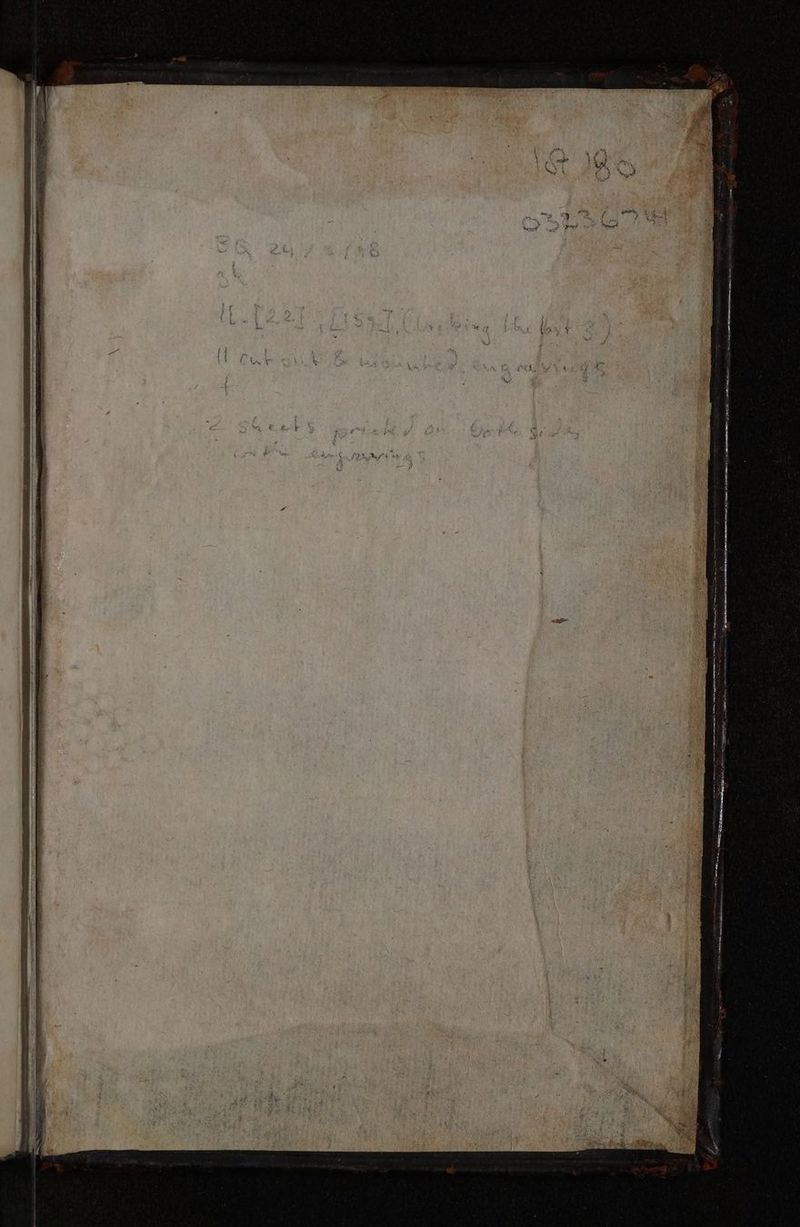 180
0323674
BQ 24/ /98
ll. [22], [159], (lacking the last 3)
11 cut out & mounted, engravings
+
2 sheets printed on both sides
with engravings